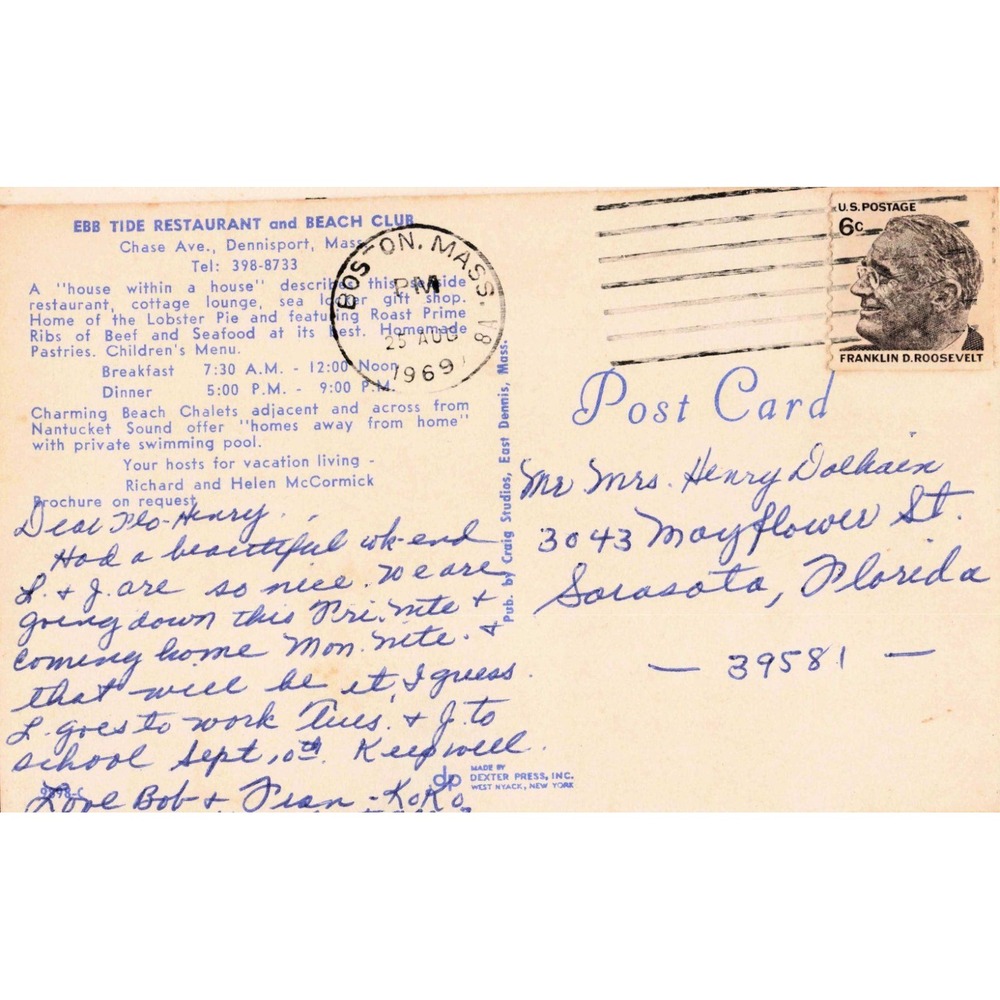 EBB TIDE RESTAURANT and BEACH CLUB
Chase Ave., Dennisport, Mass.
Tel: 398-8733
A "house within a house" describes this seaside
restaurant, cottage lounge, sea locker gift shop.
Home of the Lobster Pie and featuring Roast Prime
Ribs of Beef and Seafood at its best. Homemade
Pastries. Children's Menu.
Breakfast 7:30 A.M. - 12:00 Noon
Dinner 5:00 P.M. - 9:00 P.M.
Charming Beach Chalets adjacent and across from
Nantucket Sound offer "homes away from home"
with private swimming pool.
Your hosts for vacation living -
Richard and Helen McCormick
Brochure on request
Dear Flo-Henry.
Had a beautiful wk-end
L. + J. are so nice. We are
going down this Fri. nite +
coming home Mon. nite. +
that will be it, I guess.
L. goes to work Tues. + J. to
school Sept. 10th. Keep well.
Love Bob + Fran - KoKo
9898-C
BOSTON, MASS.
PM
25 AUG
1969
U.S. POSTAGE
6c
FRANKLIN D. ROOSEVELT
Post Card
Mr Mrs. Henry Dolhain
3043 Mayflower St.
Sarasota, Florida
- 39581 -
Pub. by Craig Studios, East Dennis, Mass.
dp
MADE BY
DEXTER PRESS, INC.
WEST NYACK, NEW YORK